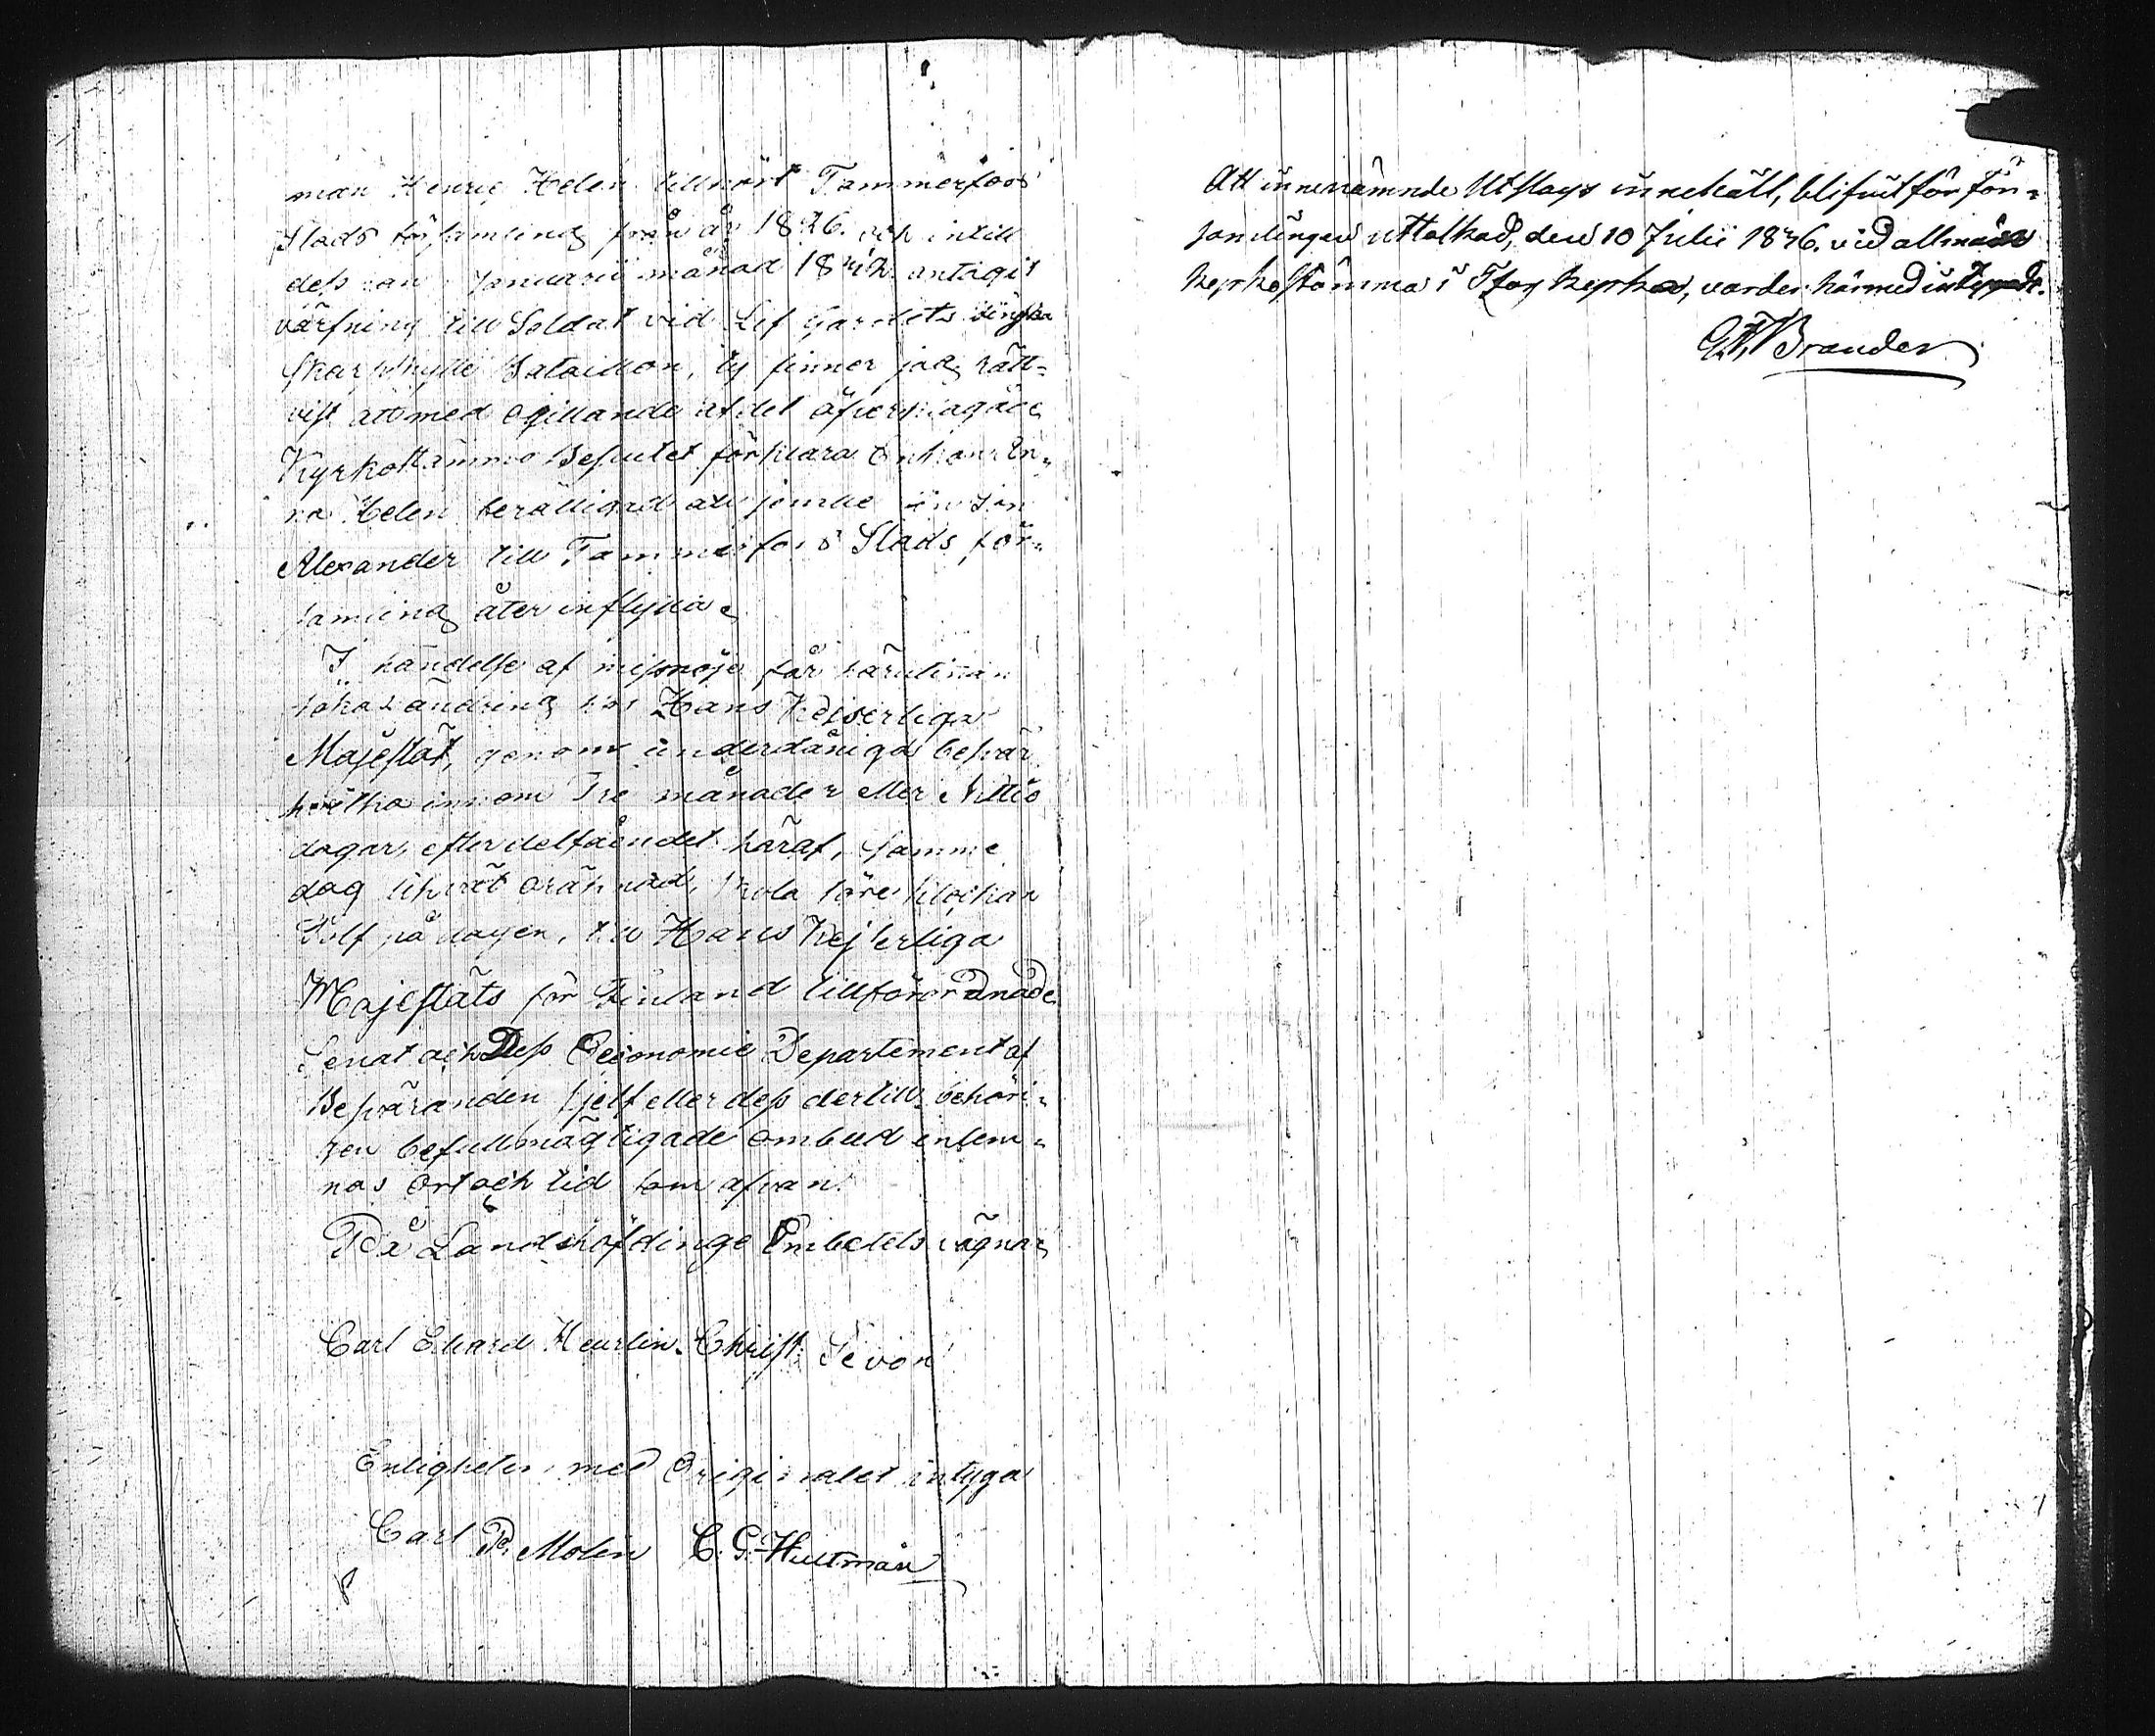 man Henric Helén tillhört Tammerfors
Stads församling från år 1836. och intill
dess han i Januarii månad 1842 antagit
värfning till Soldat vid Lif Gardets Finska
Skarpskytte Bataillon, ty finner jag rätt-
vist att med ogillande af det öfverklagade
Kyrkostämmo Beslutet förklara Enkan An-
na Helén berättigad att jemte sin Son
Alexander till Tammerfors Stads för-
samling åter inflytta.
I händelse af missnöje får härutinnan
sökas ändring hos Hans Kejserliga
Majestät, genom underdåniga besvär
hvilka innom Tre månader eller Nittio
dagar, efter delfåendet häraf, samme
dag likväl oräknad, skola före klockan
Tolf på dagen, till Hans Kejserliga
Majestäts för Finland tillförordnade
Senat och Dess Oeconomie Departement af
Besväranden sjelf eller dess dertill behöri-
gen befullmägtigade ombud inlem-
nas Ort och tid som ofvan.
På Landshöfdinge Embetets vägnar
Carl Edvard Heurlin. Christ: Sevón
Enligheten med Originalet intyga
Carl P. Molin C. G. Hultman
Att innenämnde Utslags innehåll, blifvit för För-
samlingen uttolkad, den 10 Julii 1846. vid allmän
Kyrkostämma i Tfors Kyrka, varder härmed intygadt.
Brander